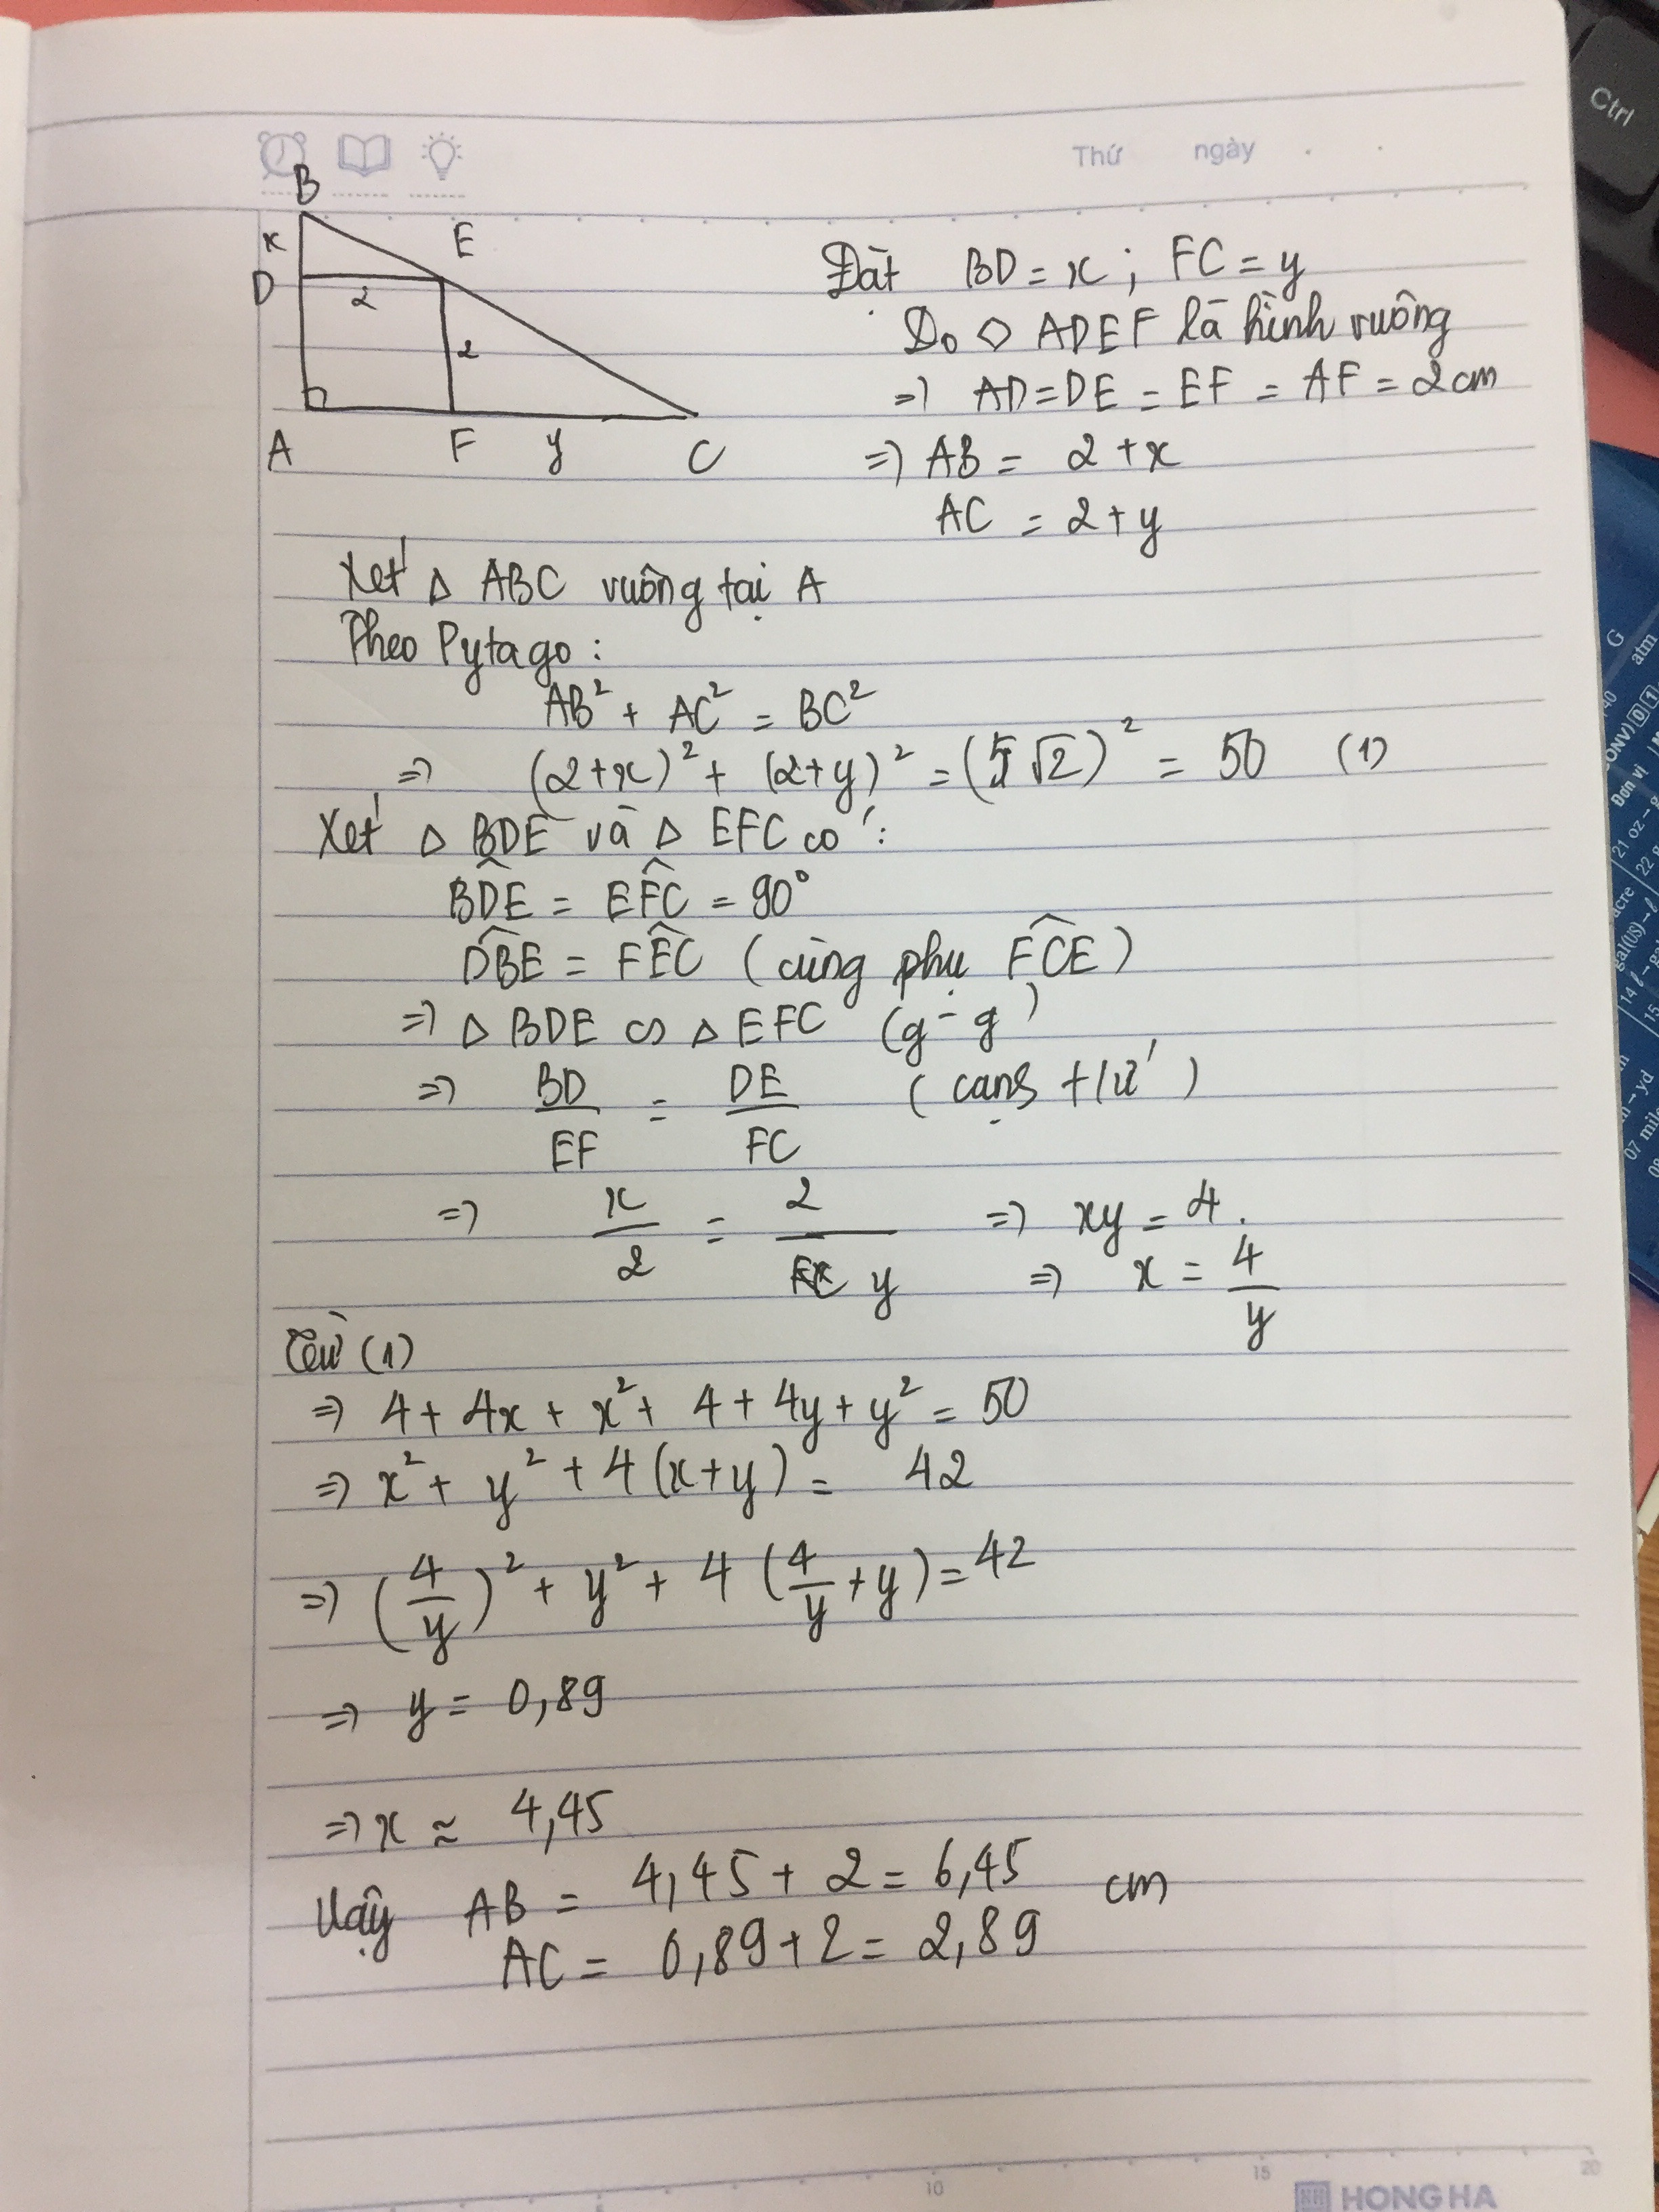 Thứ ngày
B
x
E
D
2
2
A
F
y
C
Đặt BD = x ; FC = y
Do ◇ ADEF là hình vuông
=> AD = DE = EF = AF = 2cm
=> AB = 2 + x
AC = 2 + y
Xét △ ABC vuông tại A
Theo Pytago :
AB² + AC² = BC²
=> (2+x)² + (2+y)² = (5√2)² = 50 (1)
Xét △ BDE và △ EFC có :
BD̂E = EF̂C = 90°
DB̂E = FÊC (cùng phụ FĈE)
=> △ BDE ∽ △ EFC (g-g)
=> BD/EF = DE/FC (cạnh t/ứ)
=> x/2 = 2/y => xy = 4.
=> x = 4/y
Từ (1)
=> 4 + 4x + x² + 4 + 4y + y² = 50
=> x² + y² + 4(x+y) = 42
=> (4/y)² + y² + 4(4/y + y) = 42
=> y = 0,89
=> x ≈ 4,45
Vậy AB = 4,45 + 2 = 6,45 cm
AC = 0,89 + 2 = 2,89
10 15 20
HONG HA
Ctrl
G
atm
Đơn vị